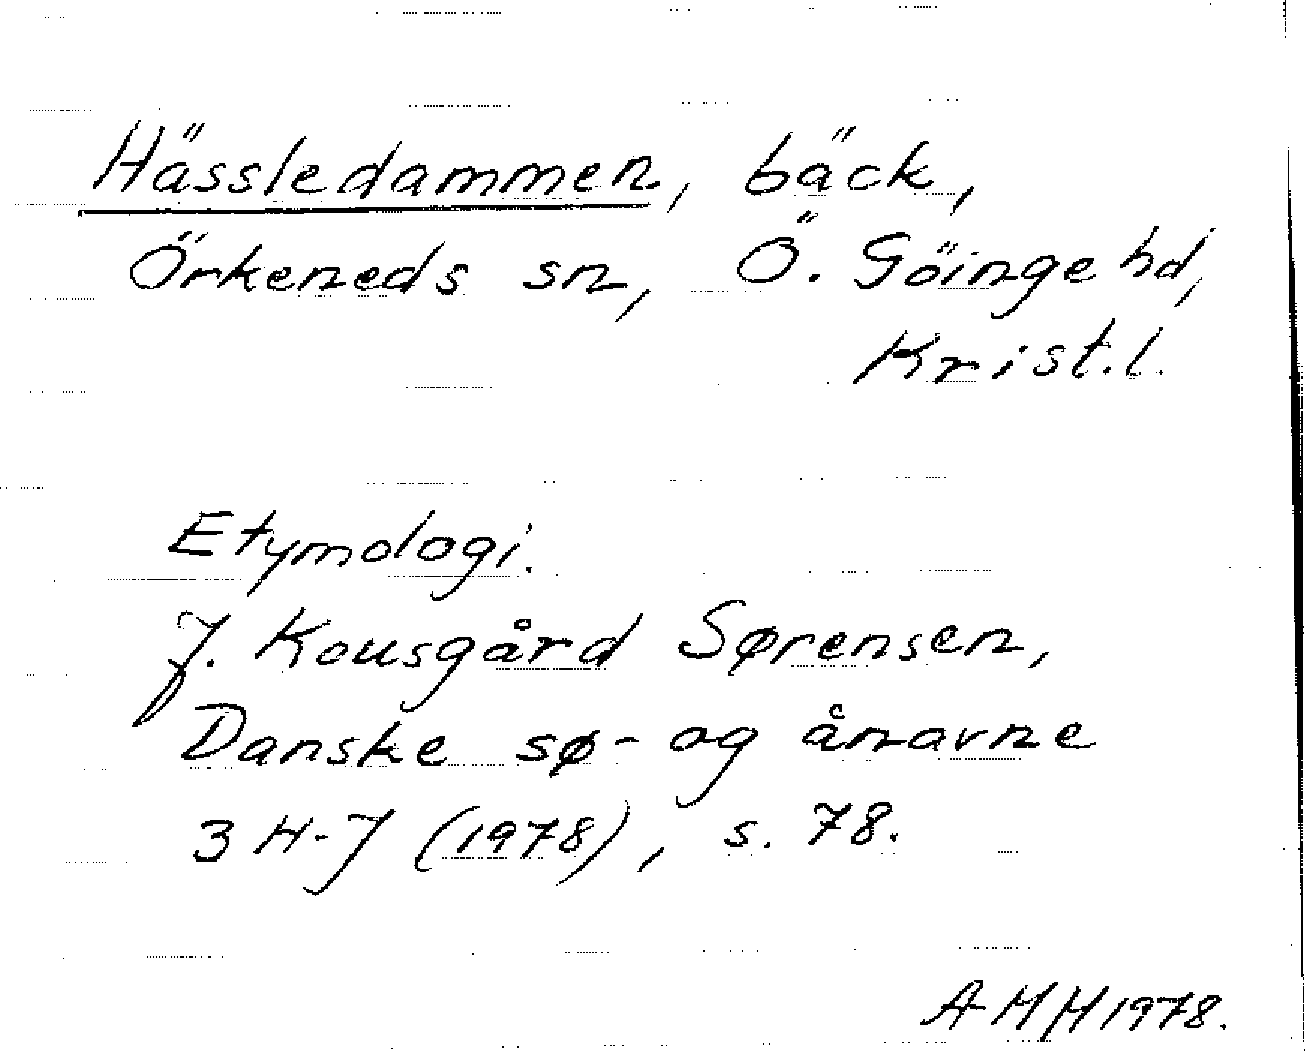 Hässledammen, bäck,
Örkeneds sn, Ö. Göinge hd,
Krist.l.
Etymologi.
J. Kousgård Sørensen,
Danske sø- og ånavne
3 H-J (1978), s. 78.
AMH 1978.